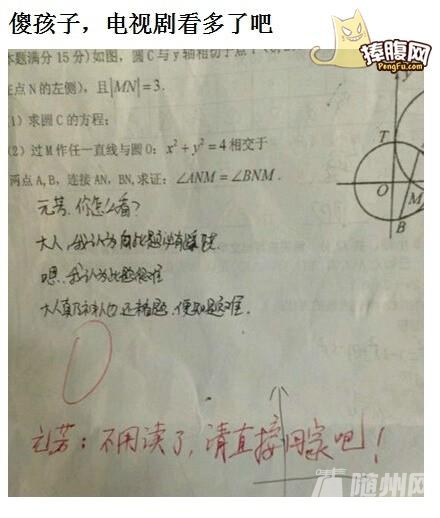 傻孩子，电视剧看多了吧
捧腹网
PengFu.com
本题满分 15 分) 如图，圆 C 与 y 轴相切于点 T
在点 N 的左侧)，且|MN|=3.
(1) 求圆 C 的方程;
(2) 过 M 作任一直线与圆 O: x²+y²=4 相交于
两点 A,B，连接 AN，BN，求证：∠ANM=∠BNM.
y
T
O
M
B
元芳，你怎么看？
大人，我认为此题
嗯，我认为此题很难
大人真乃神人也，还
0
元芳：不用读了，请直接回家吧！
随州网